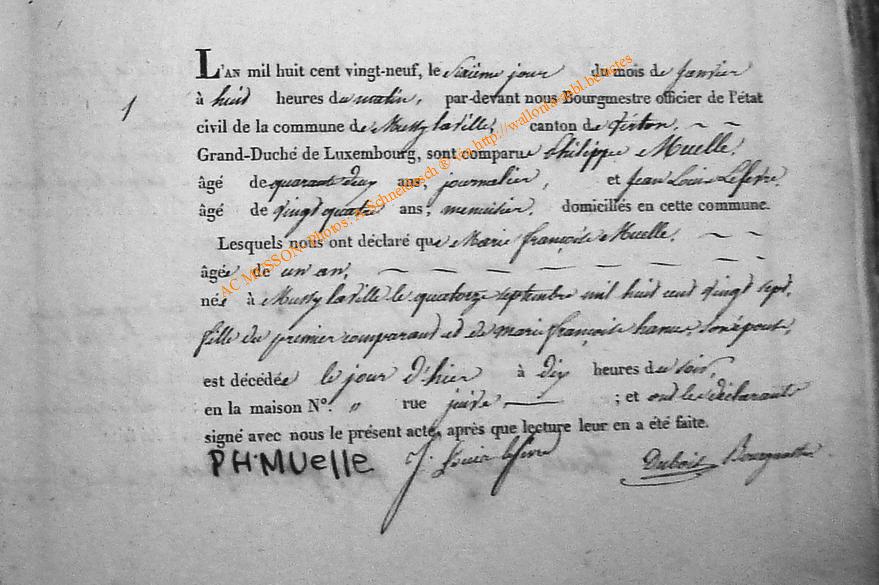 1
L'AN mil huit cent vingt-neuf, le sixième jour du mois de janvier
à huit heures du matin, par-devant nous Bourgmestre officier de l'état
civil de la commune de Mussy la Ville, canton de Virton,
Grand-Duché de Luxembourg, sont comparus Philippe Muelle,
âgé de quarante deux ans, journalier, et Jean Louis Lefevre,
âgé de vingt quatre ans, menuisier, domiciliés en cette commune.
Lesquels nous ont déclaré que Marie françoise Muelle,
âgée de un an,
née à Mussy la Ville le quatorze septembre mil huit cent vingt sept,
fille du premier comparant et de marie françoise hanus, son épouse,
est décédée le jour d'hier à dix heures du soir,
en la maison N°. " rue ; et ont les déclarants
signé avec nous le présent acte, après que lecture leur en a été faite.
PH·MUelle J. Louis lefevre Dubois Bourgmestre
AC MUSSON - Photos: A. Schneidesch ® via http://wallonia-asbl.be/actes